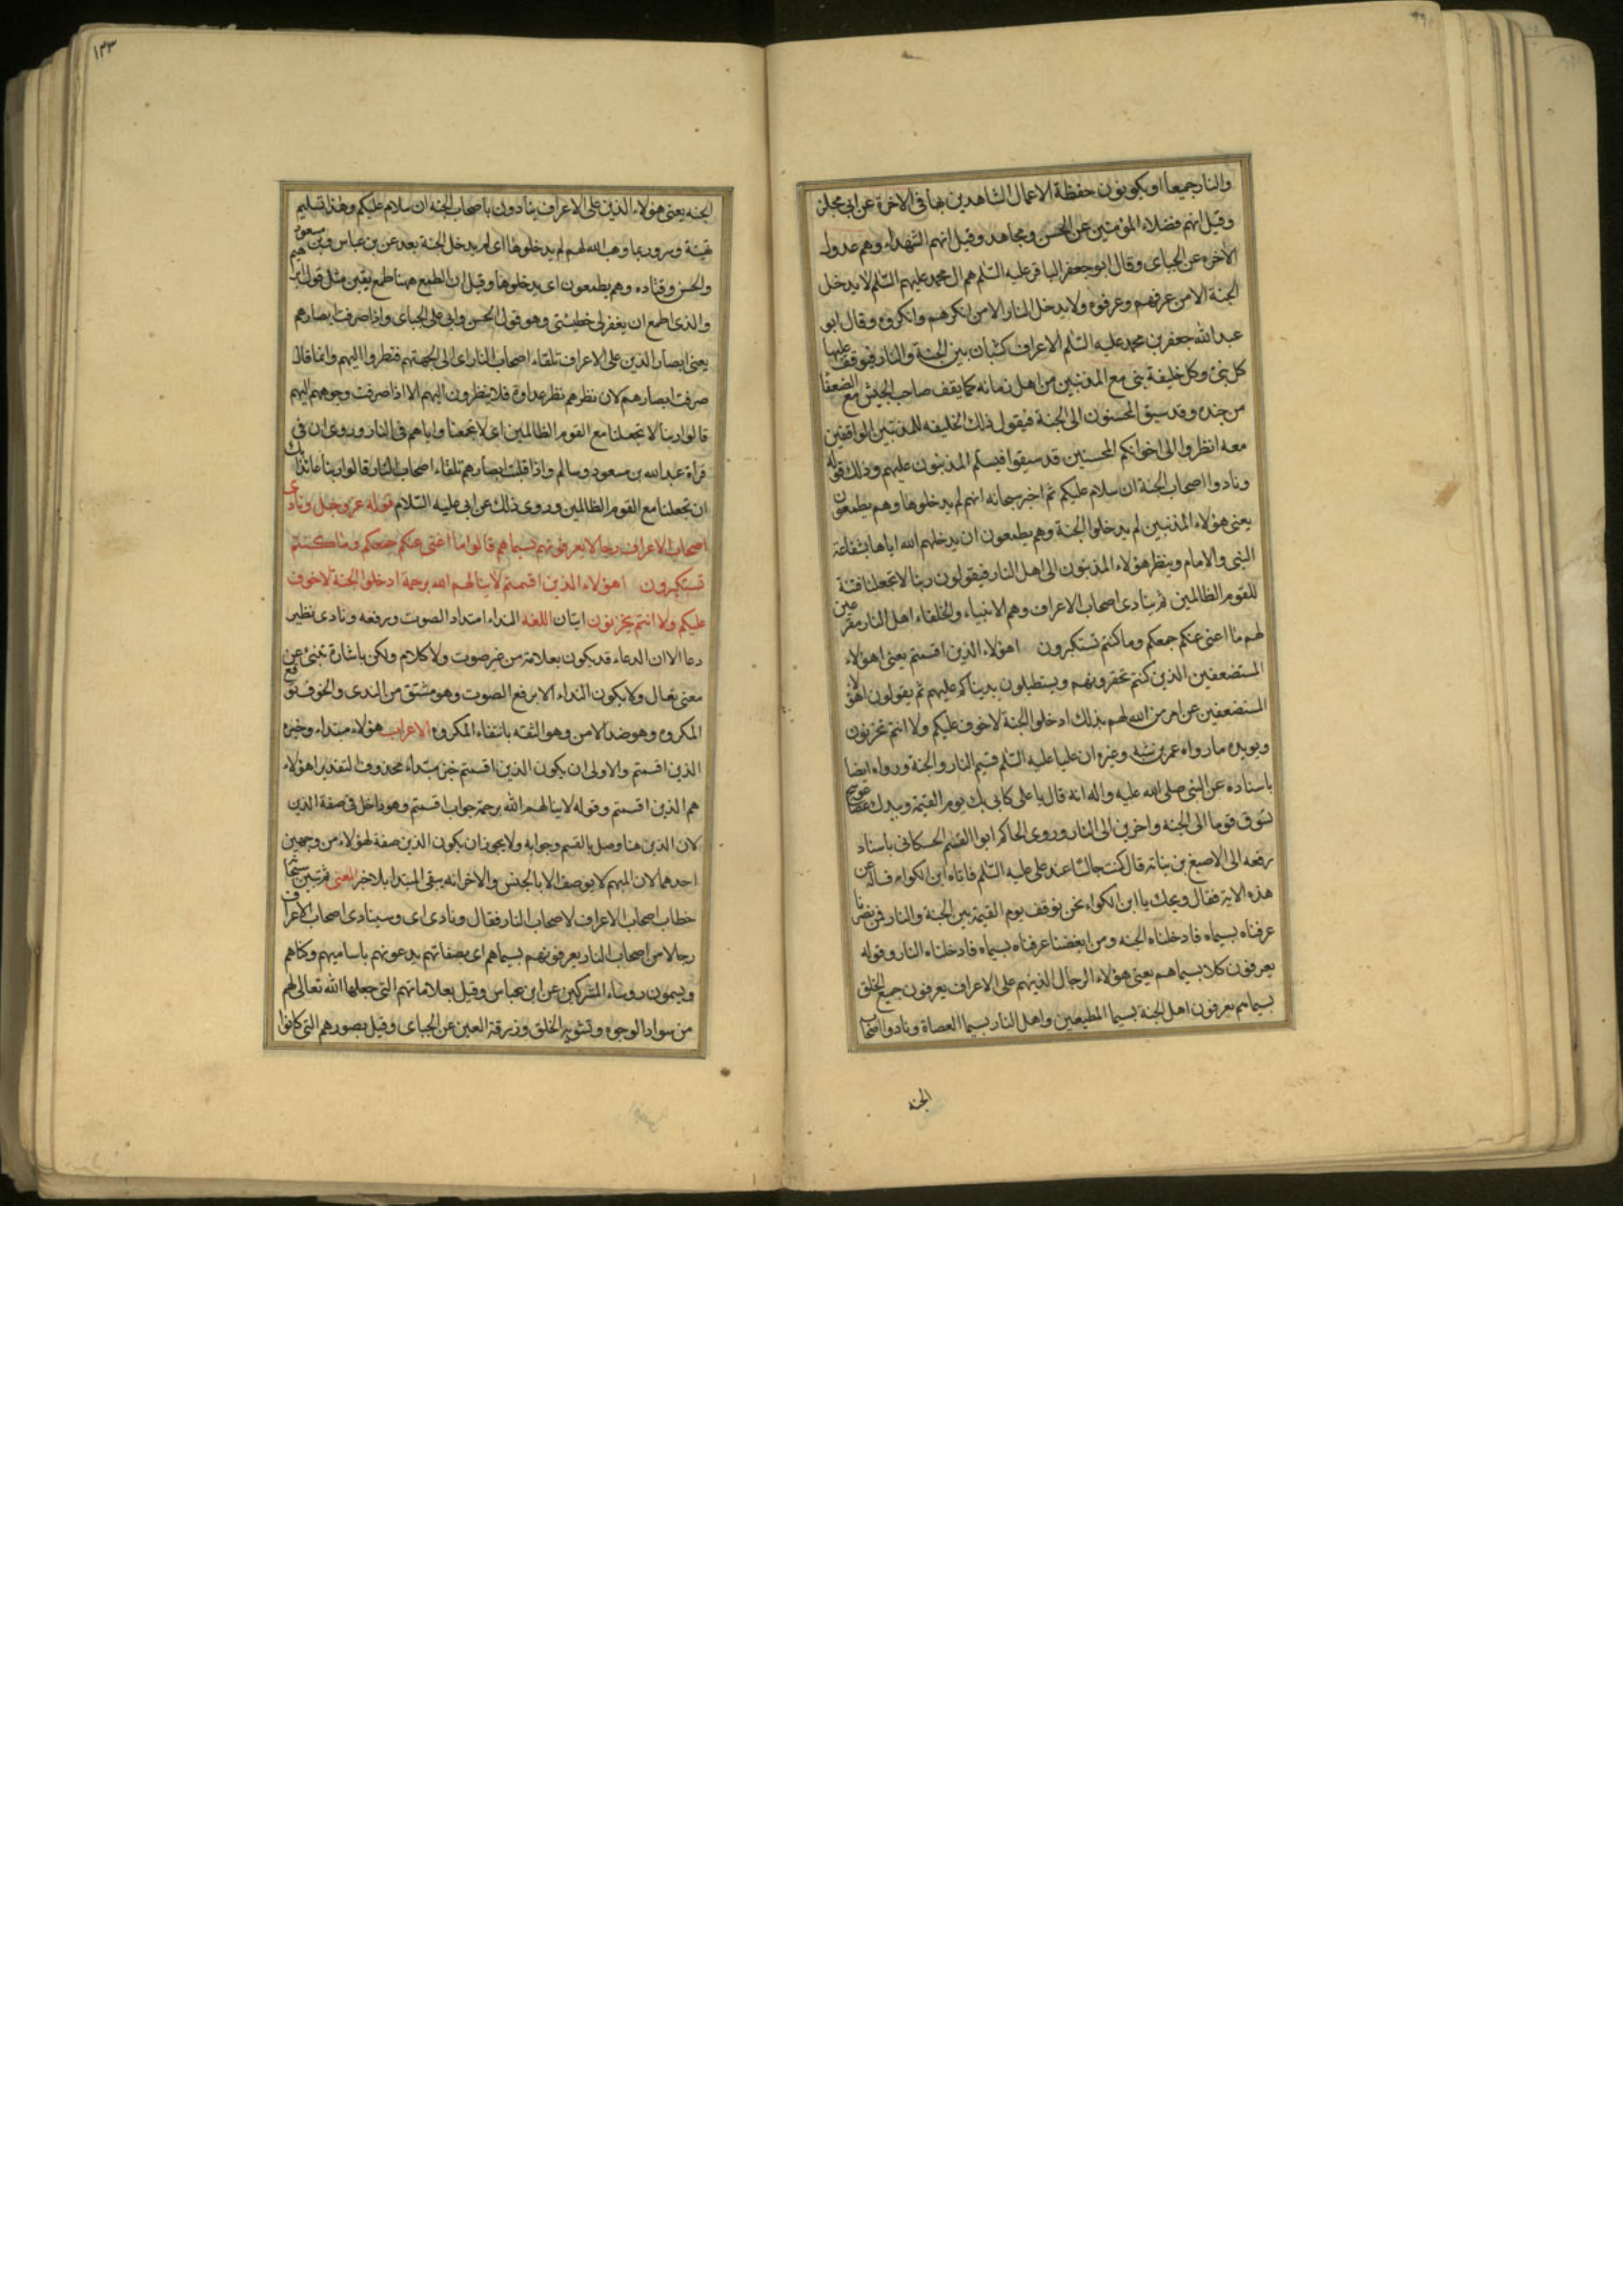 والنار جميعا او يكونون حفظة الاعمال الشاهدين بها فى الاخرة عن ابى مجلز
وقيل انهم فضلاء المؤمنين عن الحسن ومجاهد وقيل انهم الشهداء وهم عدول
الاخره عن الجباى وقال ابو جعفر الباقر عليه السلم هم ال محمد عليهم السلم لا يدخل
الجنة الا من عرفهم وعرفوه ولا يدخل النار الا من انكرهم وانكروه وقال ابو
عبد الله جعفر بن محمد عليه السلم الاعراف كثبان بين الجنة والنار فيوقف عليها
كل نبى وكل خليفة نبى مع المذنبين من اهل زمانه كما يقف صاحب الجيش مع الضعفا
من جنده وقد سيق المحسنون الى الجنة فيقول ذلك الخليفه للمذنبين الواقفين
معه انظروا الى اخوانكم المحسنين قد سيقوا فيسلم المذنبون عليهم وذلك قوله
ونادوا اصحاب الجنة ان سلام عليكم ثم اخبر سبحانه انهم لم يدخلوها وهم يطمعون
يعنى هؤلاء المذنبين لم يدخلوا الجنة وهم يطمعون ان يدخلهم الله اياها بشفاعة
النبى والامام وينظر هؤلاء المذنبون الى اهل النار فيقولون ربنا لا تجعلنا فتنة
للقوم الظالمين ثم ينادى اصحاب الاعراف وهم الانبياء والخلفاء اهل النار مقرعين
لهم ما اغنى عنكم جمعكم وما كنتم تستكبرون اهؤلاء الذين اقسمتم يعنى اهؤلاء
المستضعفين الذين كنتم تحقرونهم ويستطيلون بدنياكم عليهم ثم يقولون لهؤلا
المستضعفين عن امر من الله لهم بذلك ادخلوا الجنة لا خوف عليكم ولا انتم تحزنون
ويويده ما رواه عمر بن شبه وغيره ان عليا عليه السلم قسيم النار والجنة ورواه ايضا
باسناده عن النبى صلى الله عليه واله انه قال يا على كانى بك يوم القيمة وبيدك عصا عوسج
تسوق قوما الى الجنه واخرين الى النار وروى الحاكم ابو القسم الحسكانى باسناد
رفعه الى الاصبغ بن نباتة قال كنت جالسا عند على عليه السلم فاتاه ابن الكواء فساله عن
هذه الاية فقال ويحك يا ابن الكواء نحن نوقف يوم القيمة بين الجنة والنار فمن نصرنا
عرفناه بسيماه فادخلناه الجنه ومن ابغضنا عرفناه بسيماه فادخلناه النار وقوله
يعرفون كلا بسيماهم يعنى هؤلاء الرجال الذين هم على الاعراف يعرفون جميع الخلق
بسيماهم يعرفون اهل الجنة بسيما المطيعين واهل النار بسيما العصاة ونادوا اصحاب
الجنه
١٣٣
الجنه يعنى هؤلاء الذين على الاعراف ينادون باصحاب الجنه ان سلام عليكم وهذا تسليم
تهنئة وسرور بما وهب الله لهم لم يدخلوها اى لم يدخل الجنة بعد عن بن عباس وبن مسعود
والحسن وقتاده وهم يطمعون اى يدخلوها وقيل ان الطمع ههنا طمع يقين مثل قول ابراهيم
والذى اطمع ان يغفر لى خطيئتى وهو قول الحسن وابى على الجباى واذا صرفت ابصارهم
يعنى ابصار الذين على الاعراف تلقاء اصحاب النار اى الى الجهتهم فنظروا اليهم وانما قال
صرفت ابصارهم لان نظرهم نظر عداوة فلا ينظرون اليهم الا اذا صرفت وجوههم اليهم
قالوا ربنا لا تجعلنا مع القوم الظالمين اى لا تجمعنا واياهم فى النار وروى ان فى
قراة عبد الله بن مسعود وسالم واذا قلبت ابصارهم تلقاء اصحاب النار قالوا ربنا عائذا بك
ان تجعلنا مع القوم الظالمين وروى ذلك عن ابى عليه السلام قوله عز وجل ونادى
اصحاب الاعراف رجالا يعرفونهم بسيماهم قالوا ما اغنى عنكم جمعكم وما كنتم
تستكبرون اهؤلاء الذين اقسمتم لا ينالهم الله برحمة ادخلوا الجنة لا خوف
عليكم ولا انتم تحزنون ايتان اللغه النداء امتداد الصوت ورفعه ونادى نظير
دعا الا ان الدعاء قد يكون بعلامة من غير صوت ولا كلام ولكن باشارة تنبئ عن
معنى تعال ولا يكون النداء الا برفع الصوت وهو مشتق من الندى والخوف توقع
المكروه وهو ضد الامن وهو الثقه بانتفاء المكروه الاعراب هؤلاء مبتداء وخبره
الذين اقسمتم والاولى ان يكون الذين اقسمتم خبر مبتداء محذوف التقدير اهؤلاء
هم الذين اقسمتم وقوله لا ينالهم الله برحمة جواب اقسمتم وهو داخل فى صفة الذين
لان الذين هنا وصل بالقسم وجوابه ولا يجوز ان يكون الذين صفة لهؤلاء من وجهين
احدهما لان المبهم لا يوصف الا بالجنس والاخر انه يبقى المبتدا بلا خبر المعنى ثم تبين سبحا
خطاب اصحاب الاعراف لاصحاب النار فقال ونادى اى وسينادى اصحاب الاعراف
رجالا من اصحاب النار يعرفونهم بسيماهم اى بصفاتهم يدعونهم باساميهم وكناهم
ويسمون روساء المشركين عن ابن عباس وقيل بعلاماتهم التى جعلها الله تعالى لهم
من سواد الوجوه وتشويه الخلق وزرقة العين عن الجباى وقيل بصورهم التى كانوا